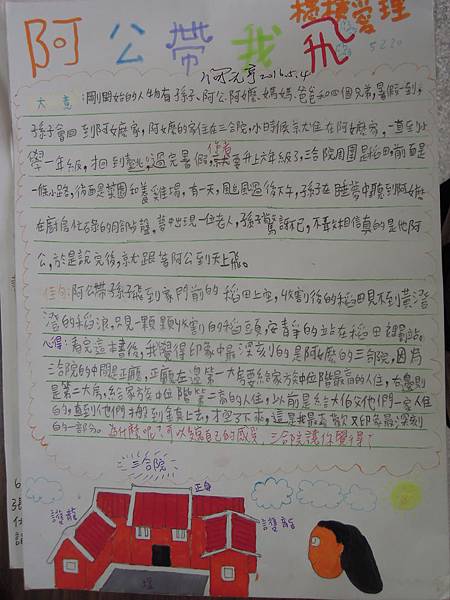 阿公帶我飛
橋橋愛理
5220
2016.5.4
大意:剛開始的人物有孫子、阿公、阿嬤、媽媽、爸爸和四個兄弟,暑假一到,
孫子會回到阿嬤家,阿嬤的家住在三合院,小時候就住在阿嬤家,一直到小
學一年級,才回到臺北,過完暑假,作者就要升上六年級了,三合院周圍是稻田,前面是
一條小路,後面是菜園和養雞場,有一天,風雨過後下午,孫子在睡夢中聽到阿嬤
在廚房化石的聲,夢中出現一位老人,孫子驚訝不已,不敢相信真的是他阿
公,於是說完後,就跟著阿公到天上飛。
佳句:阿公帶孫子飛到家門前的稻田上空,收割後的稻田見不到黃澄
澄的稻浪,只見一顆顆收割的稻頭,安靜的站在稻田裡
心得:看完這樓後,我覺得印象中最深刻的是阿嬤的三合院,因為
三合院的中間是正廳,正廳左邊第一大房要給家族中位階最高的人住,右邊則
是第二大房,給家族中位階第二高的人住,以前是給大伯父他們一家人住
的,直到他們搬到鎮上去,才空了下來,這是我最喜歡又印象最深刻
的一部分。為什麼呢?可以寫自己的感覺,三合院讓你覺得?
三合院
正身
護龍
護龍
埕